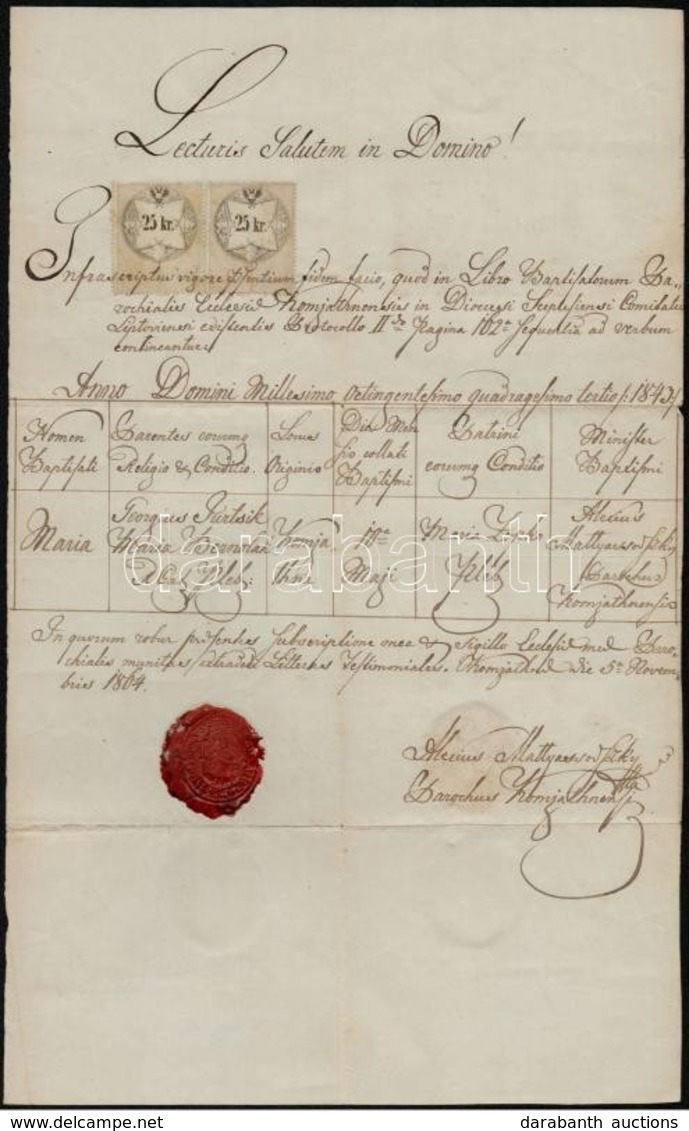 Lecturis Salutem in Domino!
25 kr. 25 kr.
Infrascriptus vigore presentium fidem facio, quod in Libro Baptisatorum Pa-
rochialis Ecclesiæ Komjathnensis in Dioecesi Scepusiensi Comitatu
Liptoviensi existentis Protocollo II do Pagina 102a sequentia ad verbum
contineantur:
Anno Domini Millesimo octingentesimo quadragesimo tertio /:1843:/
Nomen Baptisati
Parentes eorumq Religio & Conditio.
Locus Originis
Dies Men sis collati Baptismi
Patrini eorumq Conditio
Minister Baptismi
Maria
Georgius
Maria
R. Cat. Pleb:
Komja thne
Maji
Maria
Pleb
Alexius
Parochus
Komjathnensis
In quorum robur præsentes subscriptione mea & Sigillo Ecclesiæ meæ Paro-
chialis munitas extradedi Litteras Testimoniales. Komjathnæ die 5a Novem-
bris 1864.
Alexius
Parochus Komjathnensis
darabanth
darabanth auctions